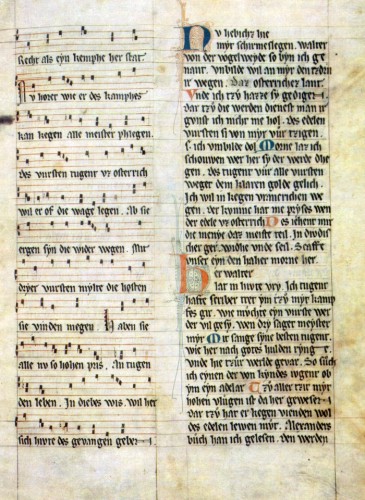 Recht als eyn kemphe her stat
u horet wie er des kamphes
kan kegen alle meister phlegen
des vursten tugent vz osterrich
wil er of die wage legen. Ab sie
ergen syn die wider wegen. Mir
dryer vursten mylte die hosten
sie vinden megen. Haben sie
alle nv so hohen pris. An tugen
den leben. In diebes wis. wil her
sich hvte des gevangen geben
v liebicht hie
myr schirmeslegen. Walter
von der vogelweyde so byn ich ge
nant. vmbilde wil an myr den
ir wegen. Daz osterricher lant.
nde ich tzv hatze so gediget
Daz tzv die werden dienest man ir
gonst ich mich me hol. des edelen
vursten so won myr vur tzigen
s. ich vmbilde dol. Morne laz ich
schouwen wer her sy der werde the
gen. des tugent vur alle vursten
weget dem klaren golde gelich.
Ich wil in kegen vrmerichen we
gen. der kvmme hat me pryses wen
der edele vz osterrich Des ichent mir
die meyte daz meiste teil. In
cher ger. widhe vnde seil.
vnser eyn den haher morne her.
er walter
laz in hvte vry. Ich tugent
hafte scriber tret yn tzv myr kamp
fes gir. wie mychte eyn vurst wer
der vil gesy. wen dry saget meister
myr Mit sange syne besten tugent.
wie her nach gotes hulden ryng
vnde hie tzur werlde gevar. So
ich eynen der von kyndes ugent ob
ym eyn adelar Tzv aller tzit myt
hohen vlugen ist da her geweset
Daz tzv hat er kegen vienden wol
des edelen lewen myt. Alexanders
buch han ich gelesen. den werden